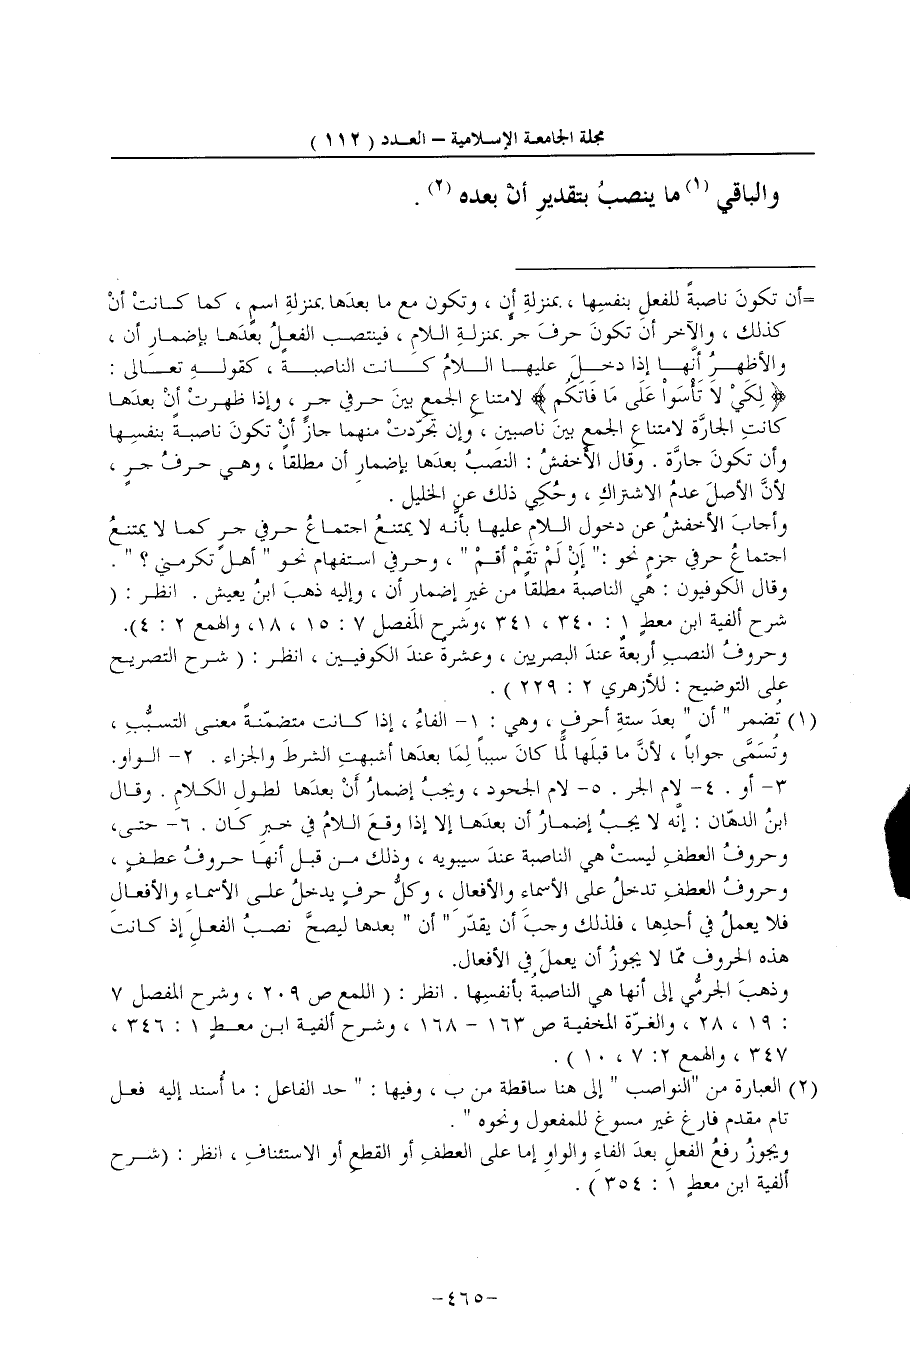 مجلة الجامعة الإسلامية – العدد ( ١١٢ )
والباقي (١) ما ينصبُ بتقديرِ أنْ بعده (٢) .
=أن تكونَ ناصبةً للفعلِ بنفسِها ، بمنزلةِ أن ، وتكون مع ما بعدَها بمنزلةِ اسمٍ ، كما كانتْ أنْ
كذلك ، والآخر أن تكونَ حرفَ جرٍّ بمنزلةِ اللامِ ، فينتصب الفعلُ بعدَها بإضمارِ أن ،
والأظهرُ أنَّها إذا دخلَ عليها اللامُ كانت الناصبةَ ، كقوله تعالى :
﴿ لِكَيْ لاَ تَأْسَوْاْ عَلَى مَا فَاتَكُمْ ﴾ لامتناعِ الجمعِ بينَ حرفي جر ، وإذا ظهرتْ أنْ بعدَها
كانتِ الجارَّة لامتناعِ الجمعِ بينَ ناصبين ، وإن تجرّدتْ منهما جازَ أنْ تكونَ ناصبةً بنفسِها
وأن تكونَ جارَّة . وقال الأخفشُ : النصبُ بعدَها بإضمارِ أن مطلقاً ، وهي حرفُ جرٍ ،
لأنَّ الأصلَ عدمُ الاشتراكِ ، وحُكِي ذلك عنِ الخليل .
وأجابَ الأخفشُ عن دخول اللامِ عليها بأنَّه لا يمتنعُ اجتماعُ حرفي جرٍ كما لا يمتنعُ
اجتماعُ حرفي جزمٍ نحو :" إنْ لَمْ تَقُمْ أقمْ " ، وحرفي استفهام نحو " أهلْ تكرمني ؟ " .
وقال الكوفيون : هي الناصبةُ مطلقاً من غيرِ إضمارِ أن ، وإليه ذهبَ ابنُ يعيش . انظر : (
شرح ألفية ابن معطٍ ١ : ٣٤٠ ، ٣٤١ ،وشرح المفصل ٧ : ١٥ ، ١٨، والهمع ٢ : ٤).
وحروفُ النصبِ أربعةٌ عندَ البصريين ، وعشرةٌ عندَ الكوفيين ، انظر : ( شرح التصريح
على التوضيح : للأزهري ٢ : ٢٢٩ ) .
(١) تُضمر " أن " بعدَ ستةِ أحرفٍ ، وهي : ١– الفاءُ ، إذا كانت متضمّنةً معنى التسبُّبِ ،
وتُسَمَّى جواباً ، لأنَّ ما قبلَها لمَّا كانَ سبباً لِمَا بعدَها أشبهتِ الشرطَ والجزاء . ٢– الواو.
٣– أو . ٤– لام الجر . ٥– لام الجحود ، ويجبُ إضمارُ أنْ بعدَها لطولِ الكلامِ . وقال
ابنُ الدهّان : إنَّه لا يجبُ إضمارُ أن بعدَها إلا إذا وقعَ اللامُ في خبرِ كان . ٦– حتى،
وحروفُ العطفِ ليستْ هي الناصبة عندَ سيبويه ، وذلك من قبل أنها حروفُ عطفٍ ،
وحروفُ العطفِ تدخلُ على الأسماءِ والأفعال ، وكلُّ حرفٍ يدخلُ على الأسماءِ والأفعال
فلا يعملُ في أحدِها ، فلذلك وجبَ أن يقدّرَ " أن " بعدها ليصحَّ نصبُ الفعلِ إذ كانتْ
هذه الحروف ممّا لا يجوزُ أن يعملَ في الأفعال.
وذهبَ الجرميُّ إلى أنها هي الناصبةُ بأنفسِها . انظر : ( اللمع ص ٢٠٩ ، وشرح المفصل ٧
: ١٩ ، ٢٨ ، والغرّة المخفية ص ١٦٣ – ١٦٨ ، وشرح ألفية ابن معطٍ ١ : ٣٤٦ ،
٣٤٧ ، والهمع ٢: ٧ ، ١٠ ) .
(٢) العبارة من "النواصب " إلى هنا ساقطة من ب ، وفيها : " حد الفاعل : ما أُسند إليه فعل
تام مقدم فارغ غير مسوغ للمفعول ونحوه " .
ويجوزُ رفعُ الفعلِ بعدَ الفاءِ والواوِ إما على العطفِ أو القطعِ أو الاستئنافِ ، انظر : (شرح
ألفية ابن معطٍ ١ : ٣٥٤ ) .
–٤٦٥–